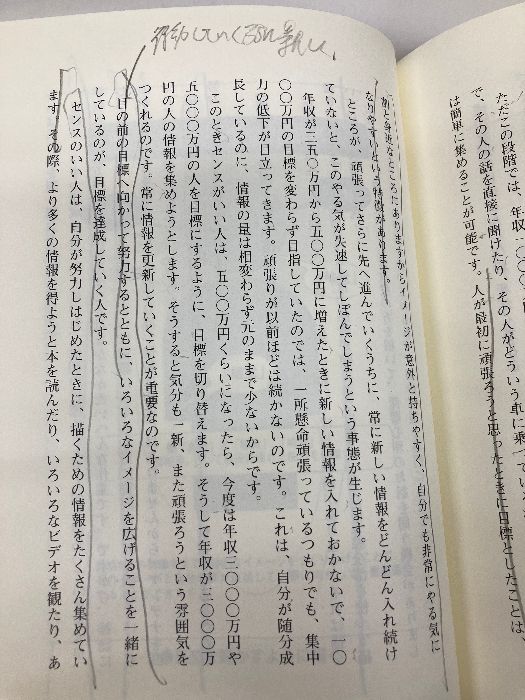 ただこの段階では、年収一〇〇〇
で、その人の話を直接に聞けたり、その人がどういう車に乗ってい
は簡単に集めることが可能です。人が最初に頑張ろうと思ったときに目標としたことは、
割と身近なところにありますからイメージが意外と持ちやすく、自分でも非常にやる気に
なりやすいという特徴があります。
ところが、頑張ってさらに先へ進んでいくうちに、常に新しい情報をどんどん入れ続け
ていないと、このやる気が失速してしぼんでしまうという事態が生じます。
年収が三五〇万円から五〇〇万円に増えたときに新しい情報を入れておかないで、一〇
〇〇万円の目標を変わらず目指していたのでは、一所懸命頑張っているつもりでも、集中
力の低下が目立ってきます。頑張りが以前ほどは続かないのです。これは、自分が随分成
長しているのに、情報の量は相変わらず元のままで少ないからです。
このときセンスがいい人は、五〇〇万円くらいになったら、今度は年収三〇〇〇万円や
五〇〇〇万円の人を目標にするように、目標を切り替えます。そうして年収が三〇〇〇万
円の人の情報を集めようとします。そうすると気分も一新、また頑張ろうという雰囲気を
つくれるのです。常に情報を更新していくことが重要なのです。
目の前の目標へ向かって努力するとともに、いろいろなイメージを広げることを一緒に
しているのが、目標を達成していく人です。
センスのいい人は、自分が努力しはじめたときに、描くための情報をたくさん集めてい
ます。その際、より多くの情報を得ようと本を読んだり、いろいろなビデオを観たり、あ